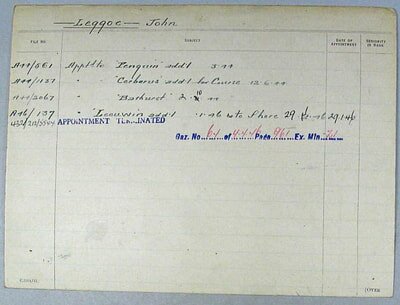 Leggoe John
FILE NO. SUBJECT DATE OF APPOINTMENT SENIORITY IN RANK
A44/561 Appt'd to "Penguin" add'l 3.44
A44/1137 " "Cerberus" add'l for Course 12.6.44
A44/2067 " "Bathurst" 2 10 44
A46/137 " "Leeuwin" add'l 1.46 to Shore 29
432/212/5564 APPOINTMENT TERMINATED
Gaz. No. 64 of 4.4.46 Page 961 Ex. Min. 21
(OVER